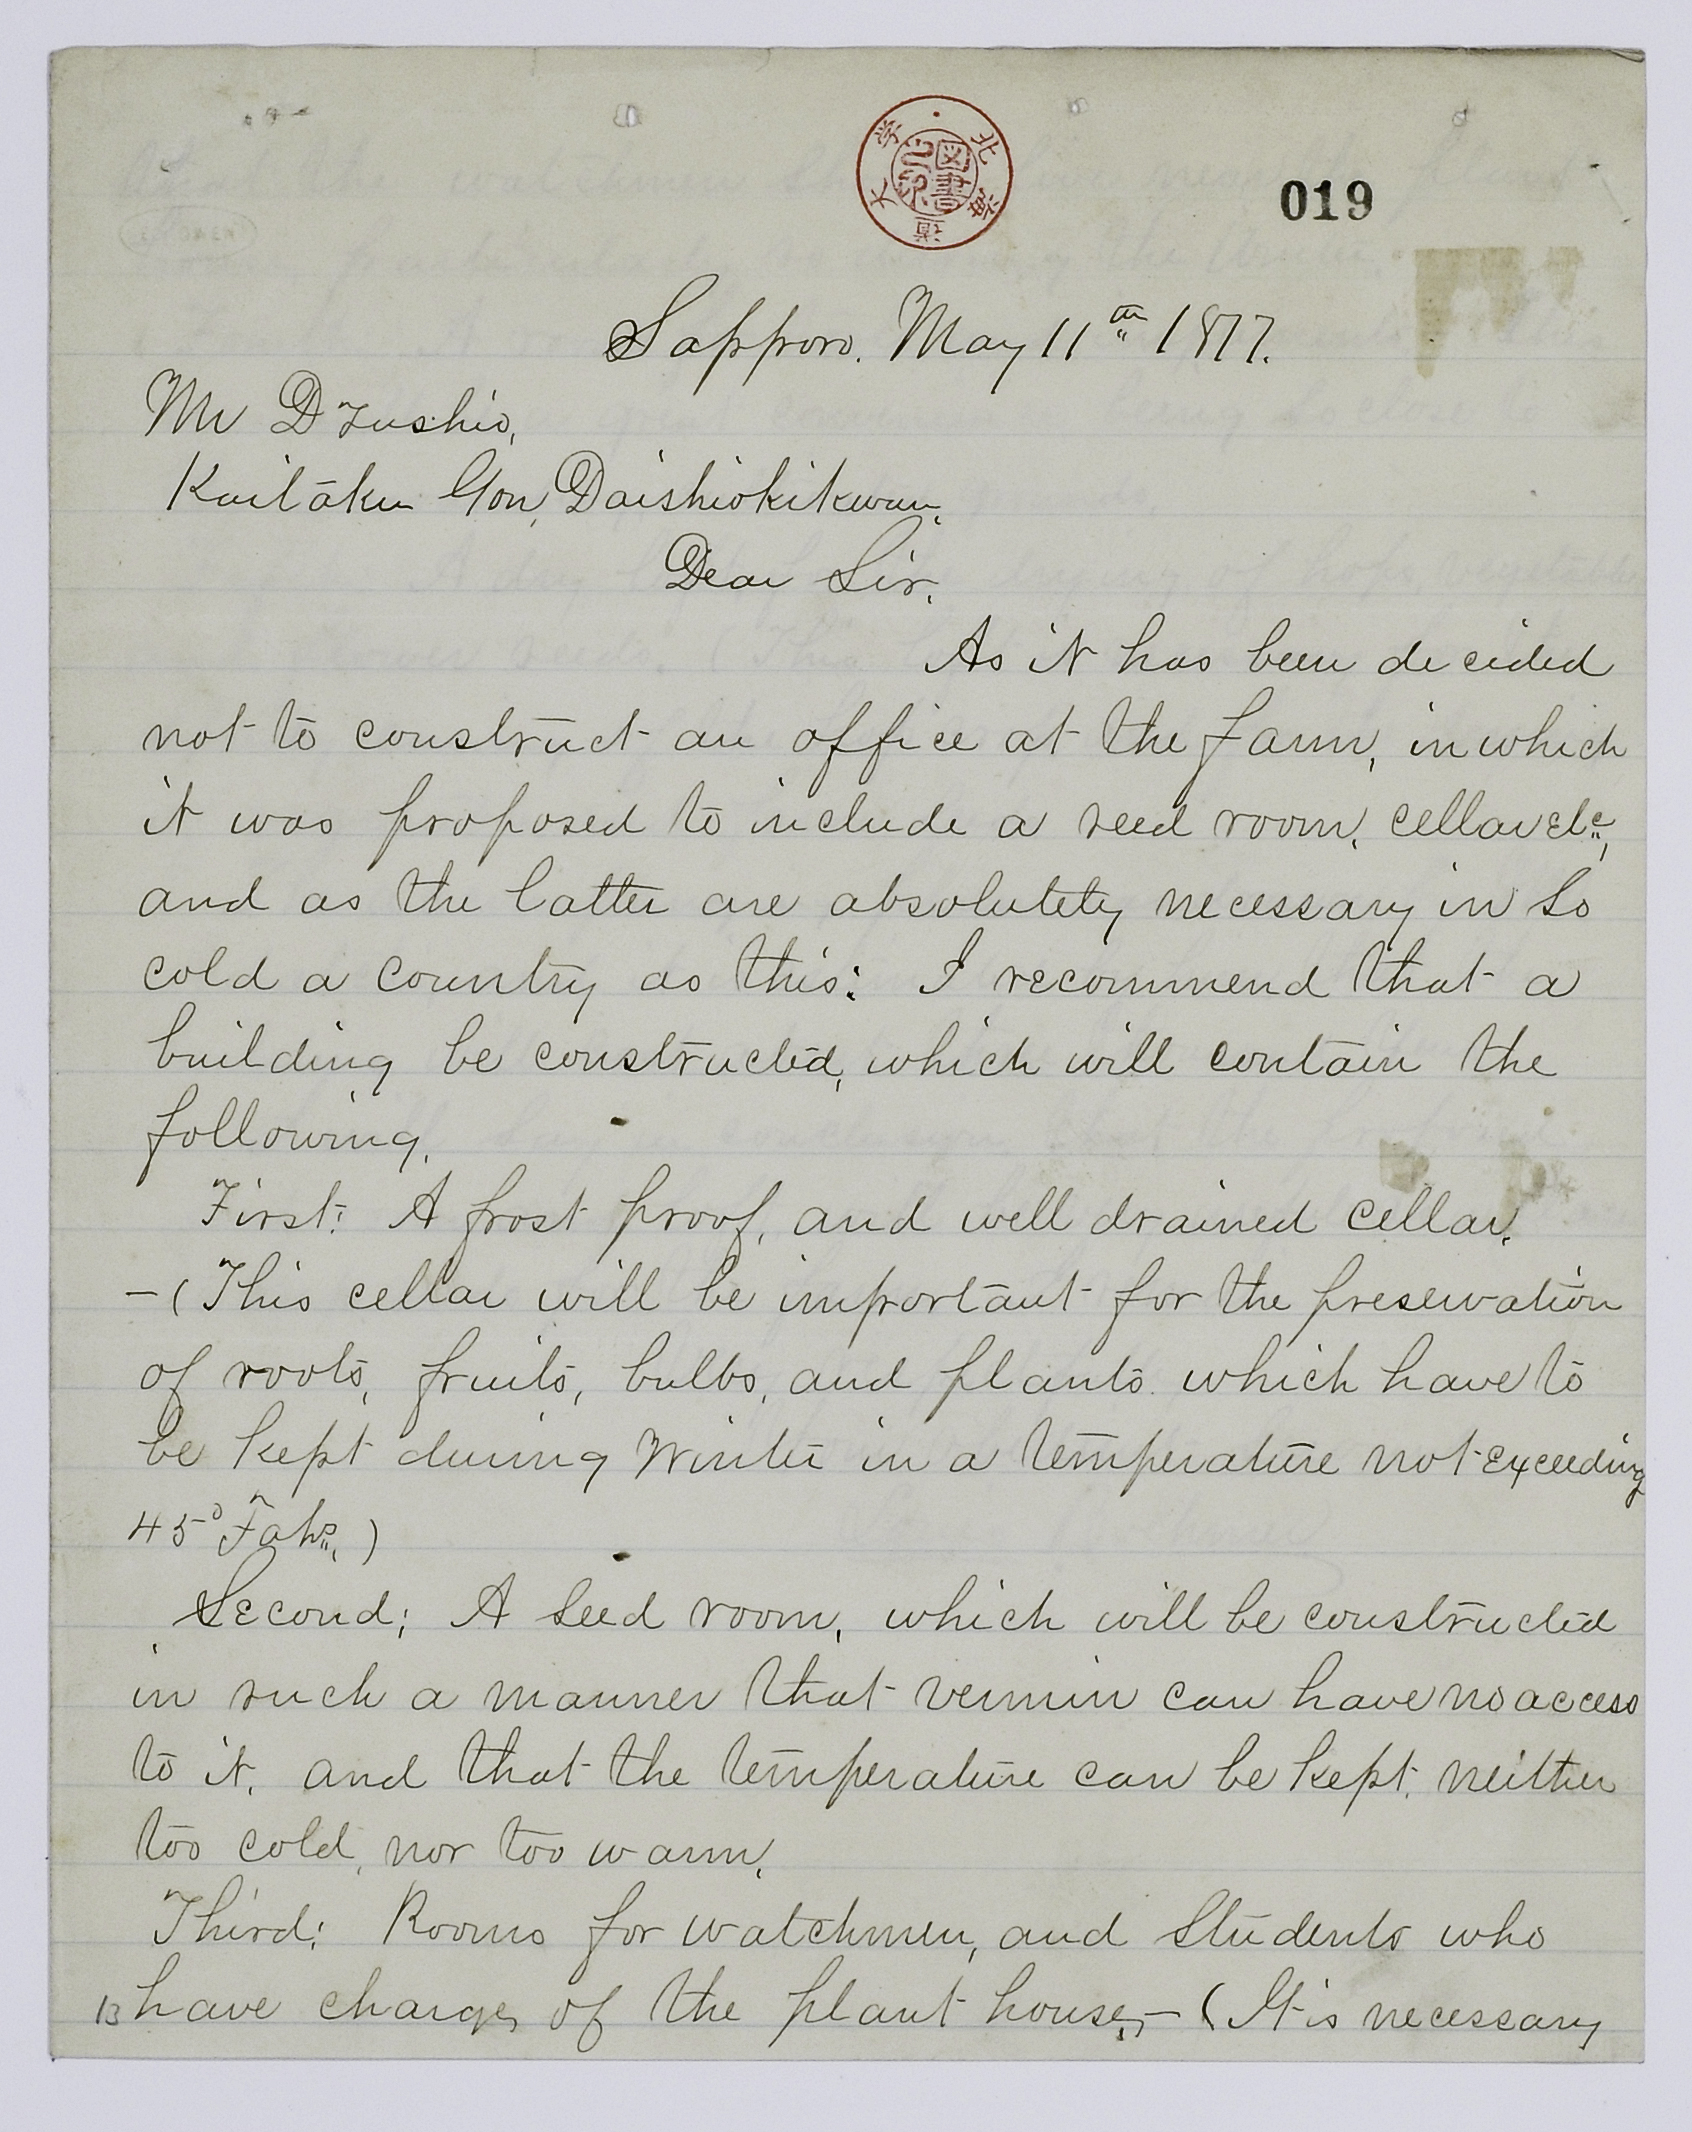 北海道大学
図書
019
Sapporo. May 11th 1877.
Mr Dzushio,
Kaitaku Gon, Daishiokikwan.
Dear Sir.
As it has been decided
not to construct an office at the farm, in which
it was proposed to include a seed room, cellar etc,
and as the latter are absolutely necessary in so
cold a country as this: I recommend that a
building be constructed, which will contain the
following.
First: A frost proof, and well drained cellar.
-(This cellar will be important for the preservation
of roots, fruits, bulbs, and plants which have to
be kept during Winter in a temperature not exceeding
45° Fahr.)
Second; A seed room, which will be constructed
in such a manner that vermin can have no access
to it, and that the temperature can be kept, neither
too cold, nor too warm.
Third: Rooms for watchmen, and students who
13 have charge, of the plant house,- (It is necessary